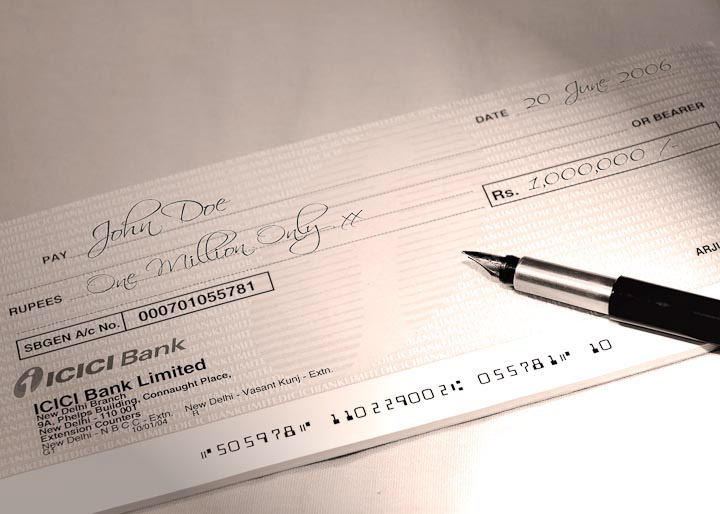 DATE 20 June 2006
OR BEARER
PAY John Doe
Rs. 1,000,000 /-
RUPEES One Million Only xx
ARJU
SBGEN A/c No. 000701055781
ICICI Bank
ICICI Bank Limited
New Delhi Branch
9A, Phelps Building, Connaught Place,
New Delhi - 110 001
Extension Counters
New Delhi - N B C C - Extn. New Delhi - Vasant Kunj - Extn.
G1 10/01/04 R
⑈505978⑈ 110229002⑆ 055781⑈ 10